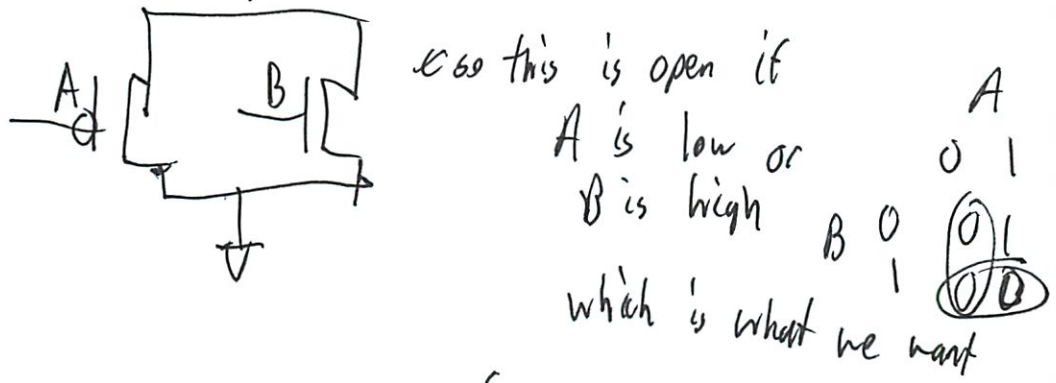 A
B
so this is open if
A is low or
B is high
which is what we want
A
0 1
B 0 0 1
1 0 0